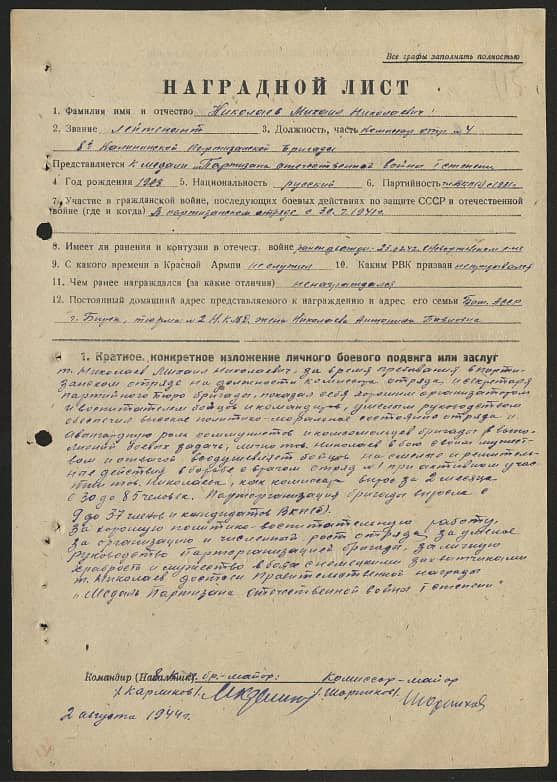 Все графы заполнять полностью
НАГРАДНОЙ ЛИСТ
1. Фамилия имя и отчество Николаев Михаил Николаевич
2. Звание лейтенант 3. Должность, часть комиссар отр. №4
8й Калининской Партизанской Бригады
Представляется к медали "Партизана отечественной войны I степени
4 Год рождения 1908 5. Национальность русский 6. Партийность
7. Участие в гражданской войне, последующих боевых действиях по защите СССР и отечественной
войне (где и когда) В партизанском отряде с 1941г.
8. Имеет ли ранения и контузии в отечест. войне
9. С какого времени в Красной Армпи не служил 10. Каким РВК призван не призывался
11. Чем ранее награждался (за какие отличия) не награждался
12. Постоянный домашний адрес представляемого к награждению и адрес его семьи
г. Бирск, тюрма №2 Н.К.В.Д. жена Николаева Антонина Павловна
1. Краткое, конкретное изложение личного боевого подвига или заслуг
т. Николаев Михаил Николаевич, за время пребывания в парти-
занском отряде на должности комиссара отряда и секретаря
партийного бюро бригады, показал себя хорошим организатором
и воспитателем бойцов и командиров, умелым руководством
обеспечил высокое политико-моральное состояние отряда и
авангардную роль коммунистов и комсомольцев бригады в выпо-
лнении боевых задач, лично тов. Николаев в бою своим мужест-
вом и отвагой воодушевляет бойцов на смелые и решитель-
ные действия в борьбе с врагом отряд №1 при активном учас-
тии тов. Николаева, как комиссара вырос за 2 месяца
с 30 до 85 человек. Парторганизация бригады выросла с
9 до 37 членов и кандидатов ВКП(б).
За хорошую политико-воспитательную работу,
за организацию и численный рост отряда, за умелое
руководство парторганизацией бригады, за личную
храбрость и мужество в боях с немецкими захватчиками
т. Николаев достоин Правительственной награды
"Медаль Партизана отечественной войны I степени"
Командир (Начальник) бр.-майор: Комиссар-майор
/Карликов/ /Шорников/
2 августа 1944г.